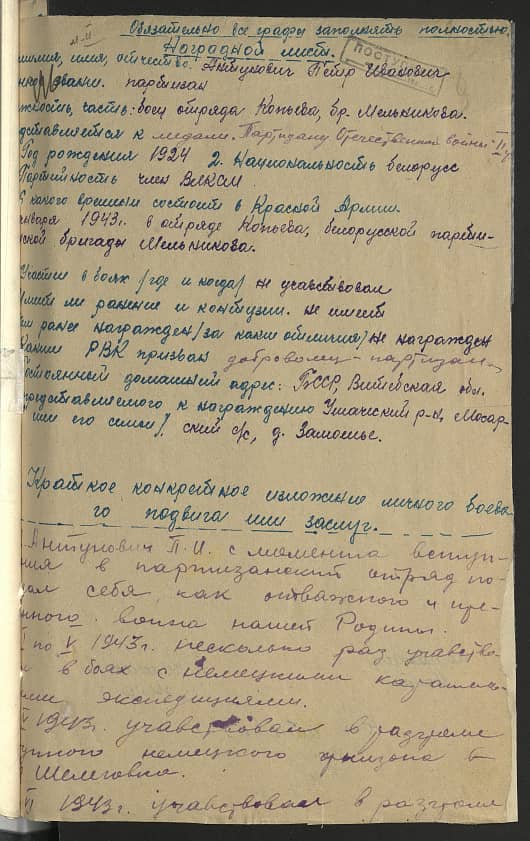 Обязательно все графы заполнять полностью.
Наградной лист.
ПОСТУП
милия, имя, отчество. Антукович Пётр Иванович
звание. партизан
жность, часть: боец отряда Копьева, бр. Мельникова.
дставляется к медали „Партизану Отечественной войны" II
Год рождения 1924 2. Национальность белорусс
Партийность член ВЛКСМ
С какого времени состоит в Красной Армии.
нваря 1943г. в отряде Копьева, белорусской парти-
ской бригады Мельникова.
Участие в боях /где и когда/ не учавствовал
Имеет ли ранение и контузии. не имеет
ем ранее награжден /за какие отличия/ не награжден
Каким РВК призван
остоянный домашний адрес: БССР, Витебская обл.
представляемого к награждению Ушачский р-н, Мосар-
или его семьи/, ский с/с, д. Замошье.
Краткое конкретное изложение личного боево-
го подвига или заслуг.
Антукович П.И. с момента вступ-
ния в партизанский отряд по-
зал себя, как отважного и пре-
нного воина нашей Родины.
по V 1943г. несколько раз учавство-
л в боях с немецкими каратель-
ми экспедициями.
1943г. учавствовал в разгроме
упного немецкого гарнизона в
Шелеговка.
VI 1943г. учавствовал в разгроме